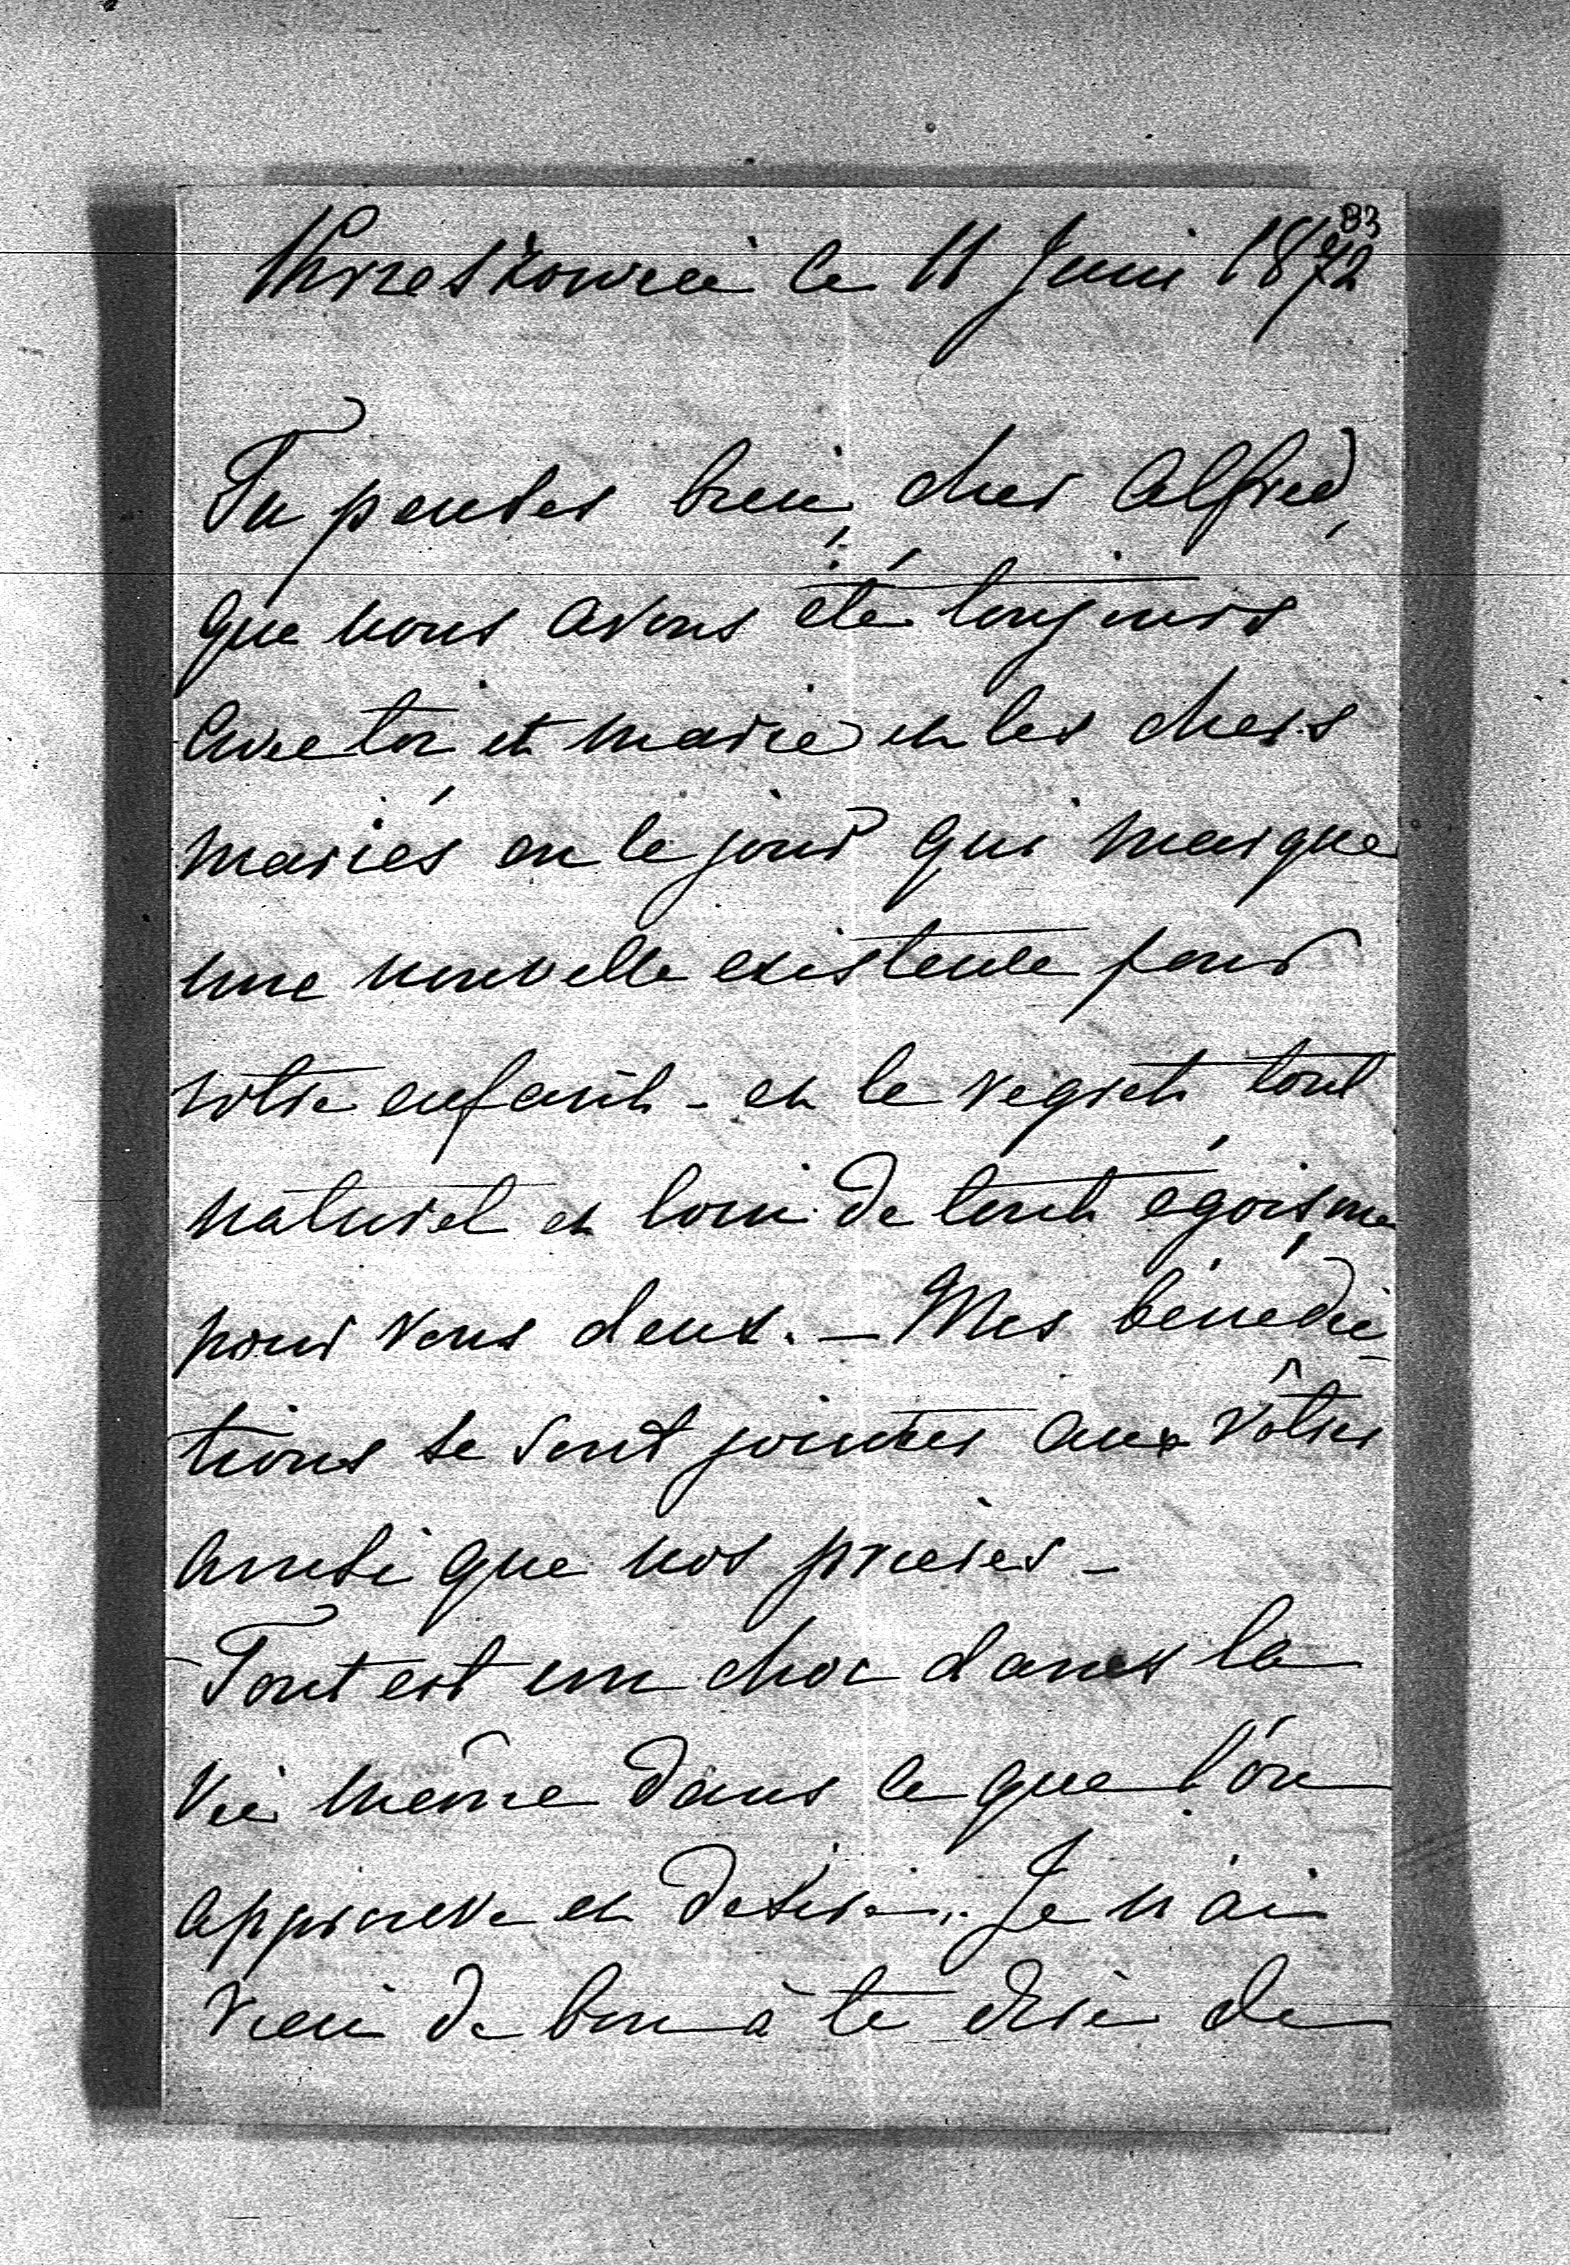 83
Krzeszowice le 11 Juin 1872
Tu penses bien, cher Alfred,
que nous avons été toujours
avec toi et Marie et les chers
mariés en le jour qui marque
une nouvelle existence pour
votre enfant - et le regret tout
naturel et loin de tout égoisme
pour vous deux. - Mes bénédic-
tions se sont jointes aux vôtres
ainsi que nos prieres -
Tout est un choc dans la
vie même dans ce que l'on
approuve et desire. Je n'ai
rien de bon à te dire de